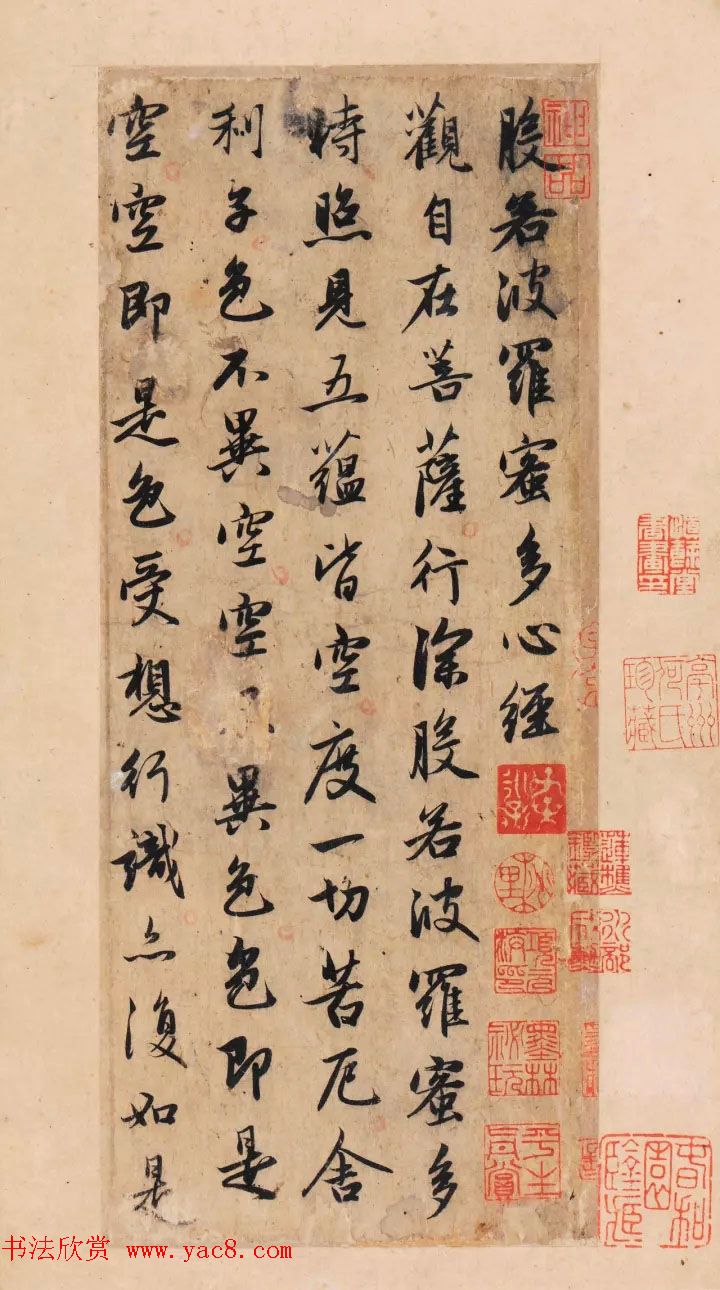 般若波羅蜜多心經
觀自在菩薩行深般若波羅蜜多
時照見五蘊皆空度一切苦厄舍
利子色不異空空不異色色即是
空空即是色受想行識亦復如是
神品
墨林祕玩
亭州何氏珍藏
书法欣赏 www.yac8.com